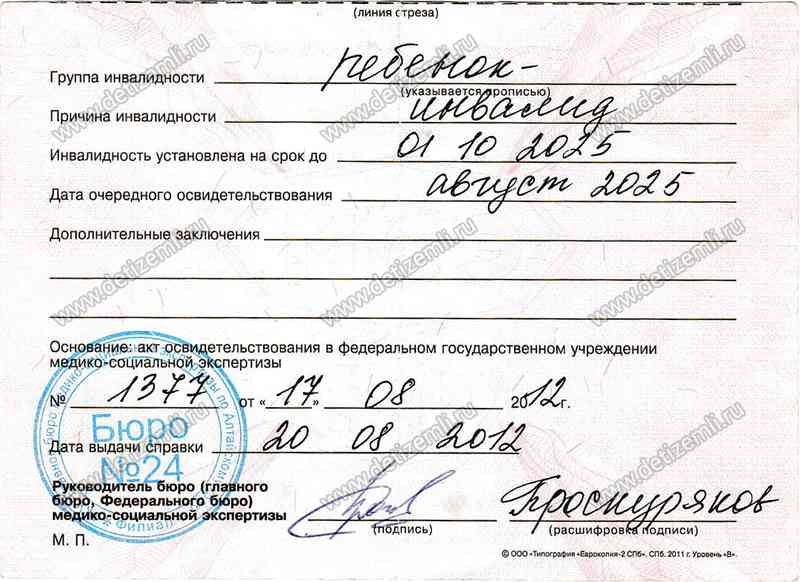 (линия отреза)
Группа инвалидности ребенок-
(указывается прописью)
Причина инвалидности инвалид
Инвалидность установлена на срок до 01 10 2025
Дата очередного освидетельствования август 2025
Дополнительные заключения
Основание: акт освидетельствования в федеральном государственном учреждении
медико-социальной экспертизы
№ 1377 от «17» 08 2012г.
Бюро
Дата выдачи справки 20 08 2012
№24
Руководитель бюро (главного
бюро, Федерального бюро)
медико-социальной экспертизы Проскуряков
(подпись) (расшифровка подписи)
М. П.
© ООО «Типография «Еврокопия-2 СПб», СПб. 2011 г. Уровень «В».
www.detizemli.ru